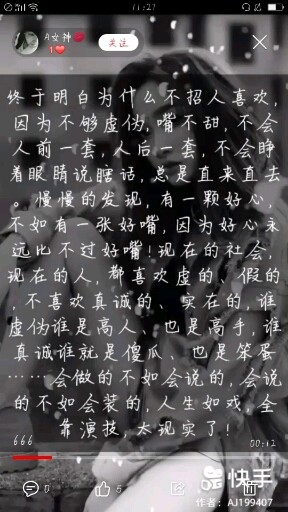 11:27
A女神💋
1❤
关注
终于明白为什么不招人喜欢,
因为不够虚伪,嘴不甜,不会
人前一套,人后一套,不会睁
着眼睛说瞎话,总是直来直去
。慢慢的发现,有一颗好心,
不如有一张好嘴,因为好心永
远比不过好嘴!现在的社会,
现在的人,都喜欢虚的、假的
,不喜欢真诚的、实在的,谁
虚伪谁是高人、也是高手,谁
真诚谁就是傻瓜、也是笨蛋
……会做的不如会说的,会说
的不如会装的,人生如戏,全
靠演技,太现实了!
666
00:12
0
5
快手
作者:AJ199407